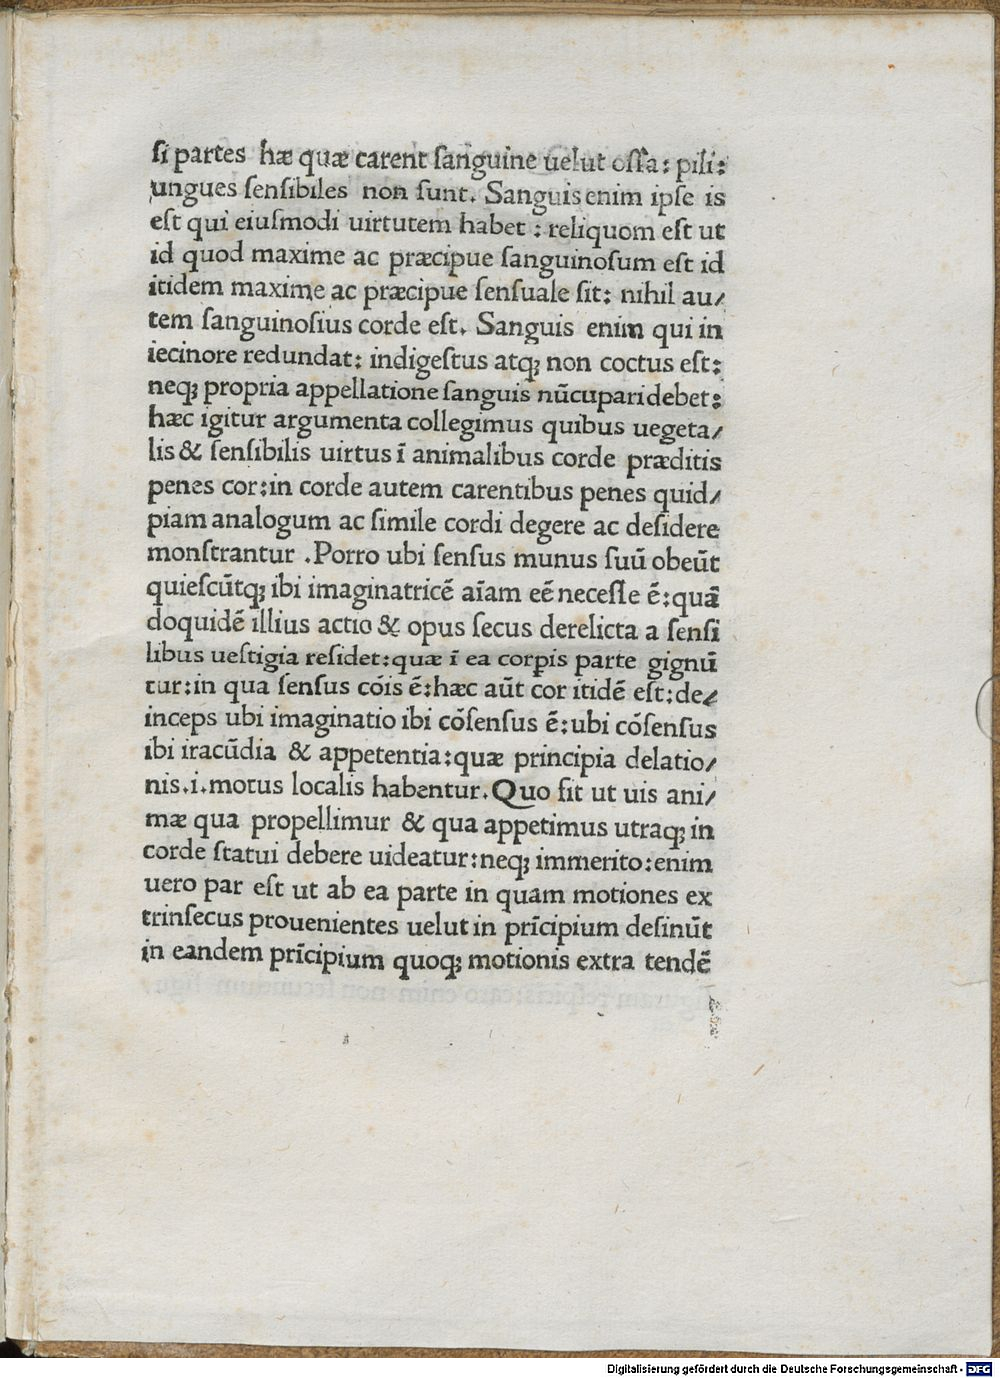 si partes hæ quæ carent sanguine uelut ossa: pili:
ungues sensibiles non sunt. Sanguis enim ipse is
est qui eiusmodi uirtutem habet : reliquom est ut
id quod maxime ac præcipue sanguinosum est id
itidem maxime ac præcipue sensuale sit: nihil au/
tem sanguinosius corde est. Sanguis enim qui in
iecinore redundat: indigestus atqꝫ non coctus est:
neqꝫ propria appellatione sanguis nūcupari debet:
hæc igitur argumenta collegimus quibus uegeta/
lis & sensibilis uirtus ī animalibus corde præditis
penes cor:in corde autem carentibus penes quid/
piam analogum ac simile cordi degere ac desidere
monstrantur .Porro ubi sensus munus suū obeūt
quiescūtqꝫ ibi imaginatricē aīam eē necesse ē:quā
doquidē illius actio & opus secus derelicta a sensi
libus uestigia residet:quæ ī ea corpis parte gignū
tur:in qua sensus cōis ē:hæc aūt cor itidē est:de/
inceps ubi imaginatio ibi cōsensus ē:ubi cōsensus
ibi iracūdia & appetentia:quæ principia delatio/
nis.i.motus localis habentur.Quo sit ut uis ani/
mæ qua propellimur & qua appetimus utraqꝫ in
corde statui debere uideatur:neqꝫ immerito:enim
uero par est ut ab ea parte in quam motiones ex
trinsecus prouenientes uelut in prīcipium desinūt
in eandem prīcipium quoqꝫ motionis extra tendē
Digitalisierung gefördert durch die Deutsche Forschungsgemeinschaft - DFG